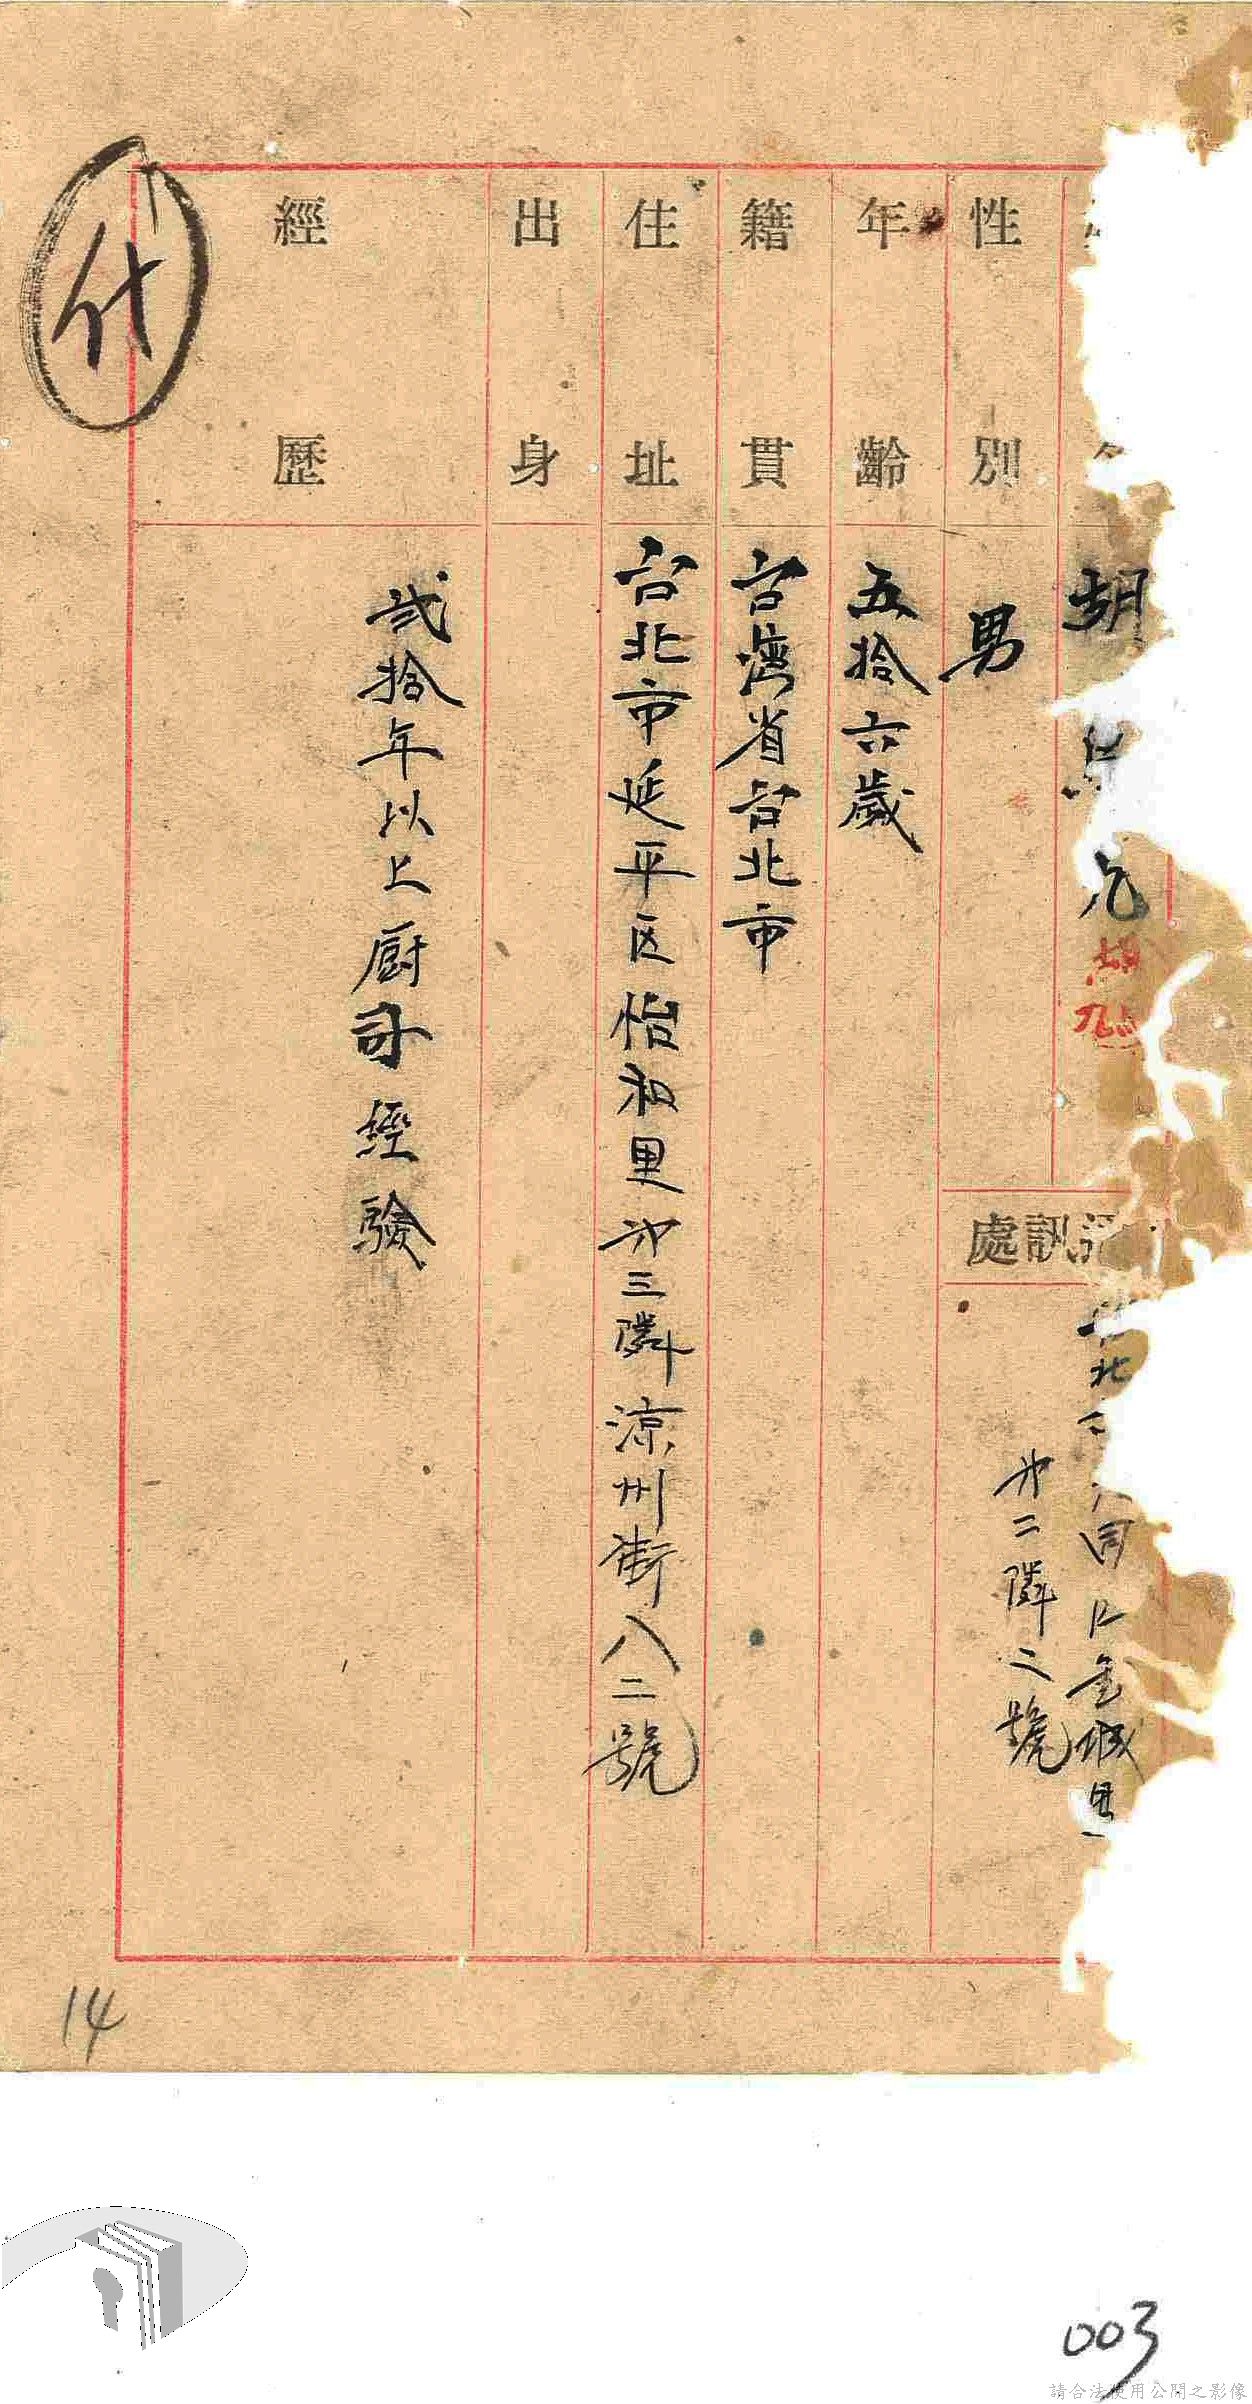 胡
性別 男
通訊處
同區金城里
第二隣二號
年齡 五拾六歲
籍貫 台灣省台北市
住址 台北市延平区怡和里第三隣涼州街八二號
出身
經歷 弍拾年以上廚司經驗
14
003
請合法使用公開之影像